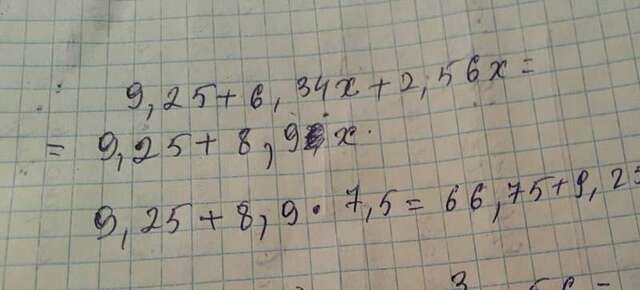 9,25+6,34x+2,56x=
= 9,25+8,9x.
9,25+8,9·7,5=66,75+9,25
3